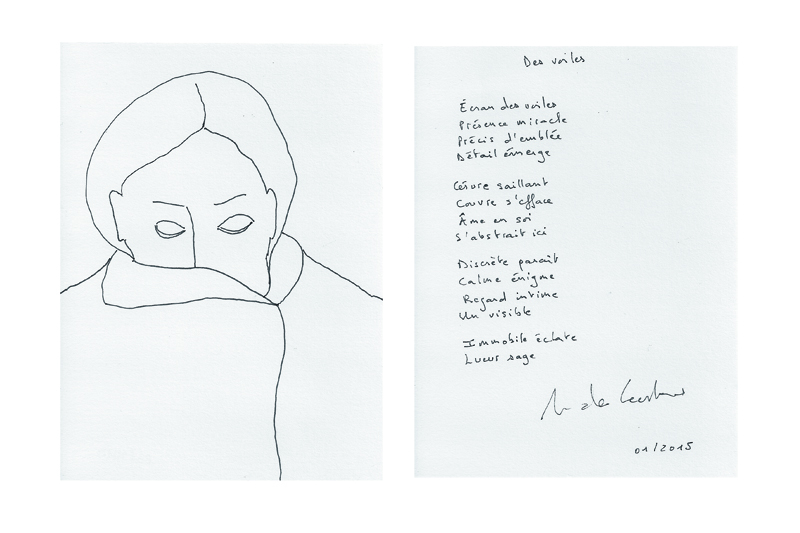 Des voiles
Écran des voiles
Présence miracle
Précis d'emblée
Détail émerge
Césure saillant
Couvre s'efface
Âme en soi
s'abstrait ici
Discrète paraît
Calme énigme
Regard intime
Un visible
Immobile éclate
Lueur sage
01/2015